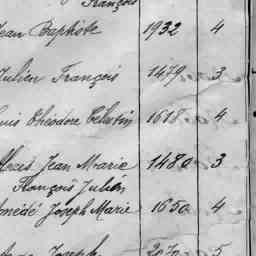 François
Jean Baptiste 1932 4
Julien François 1479 3
Louis Théodore Célestin 1618 4
Alexis Jean Marie 1480 3
François Julien
Amédé Joseph Marie 1650 4
Joseph 2070 5